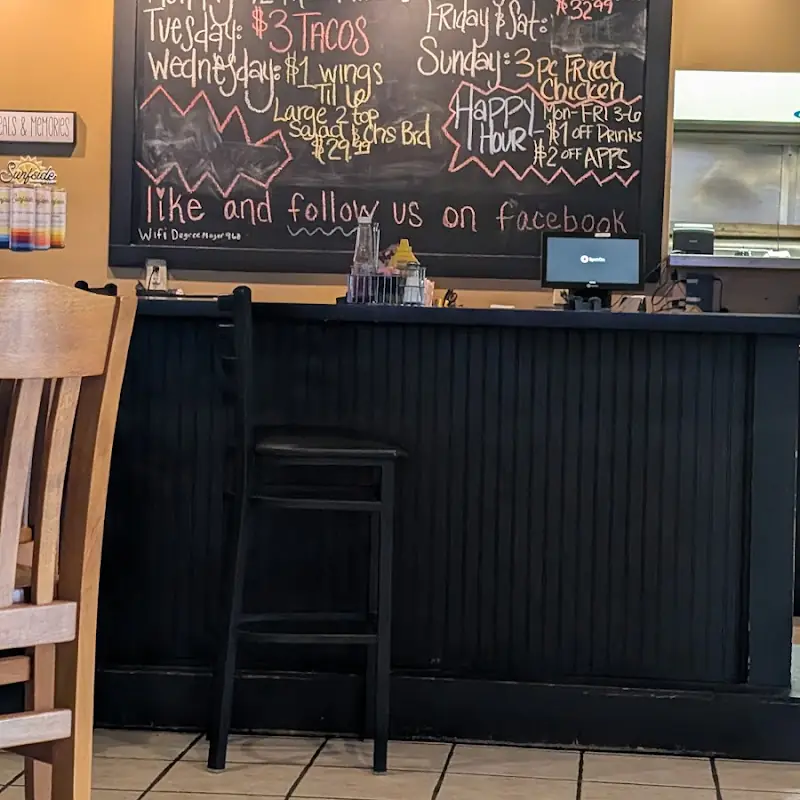 Tuesday: $3 TACOS
Wednesday: $1 wings
Til 6
Large 2 top
Salad & Chs Brd
$29.99
Friday & Sat:
$32.99
Sunday: 3 pc Fried
Chicken
HAPPY
HOUR
Mon-FRI 3-6
- $1 off Drinks
$2 OFF APPS
like and follow us on facebook
Wifi DegreeMajor968
& MEMORIES
Surfside